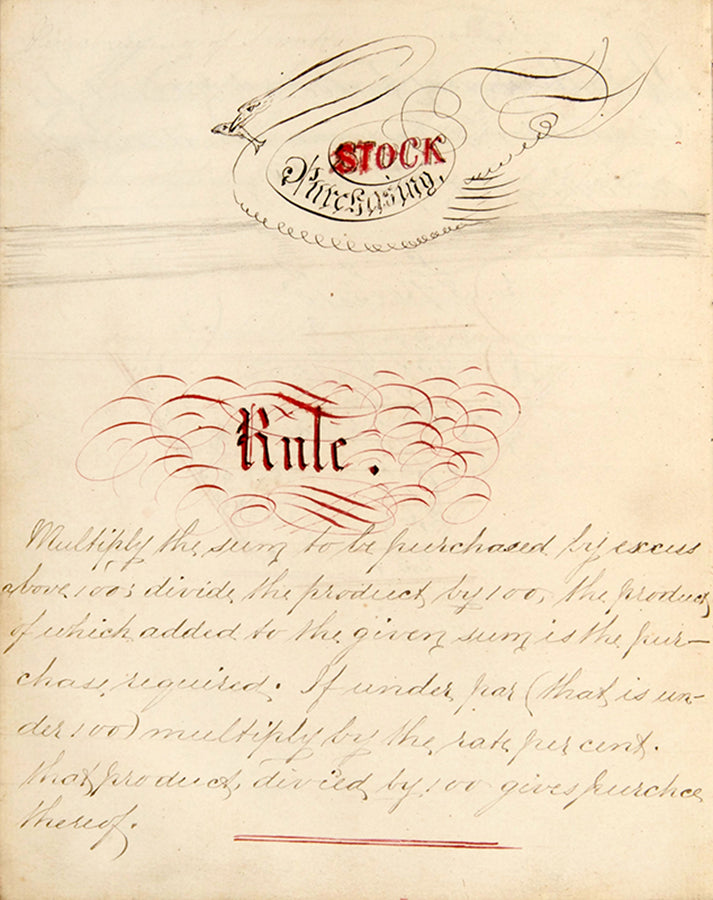 STOCK
Purchasing.
Rule.
Multiply the sum to be purchased by excess
above 100; divide the product by 100, the product
of which added to the given sum is the pur-
chase required. If under par (that is un-
der 100) multiply by the rate per cent.
that product, divied by 100 gives purchce
thereof.